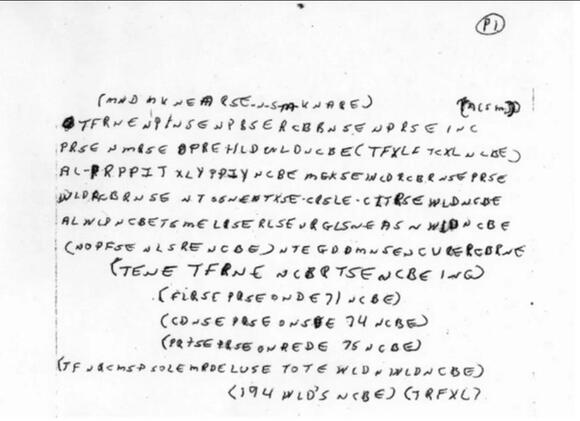 P1
(MND MKNEARSE-N-S-M-KNARE) (ACSM)
TFRNENPINSENPBSERCBBNSENPRSEINC
PRSENMRSEOPREHLDWLDNCBE(TFXLFTCXLNCBE)
AL-PRPPITXLYPPIYNCBEMGKSEWCDRCBRNSEPRSE
WLDRCBRNSENTSGNENTXSE-CRSLE-CITRSEWLDNCBE
ALWLDNCBETSMELRSERLSEURGLSNEASNWLDNCBE
(NOPFSENLSRENCBE)NTEGDDMNSENCURERCBRNE
(TENETFRNENCBRTSENCBEING)
(FLRSEPRSEONDE71NCBE)
(CDNSEPRSEONSDE74NCBE)
(PRTSEPRSEONREDE75NCBE)
(TFNRCMSPSOLEMRDELUSETOTEWLDNWLDNCBE)
(194WLD'SNCBE)(TRFXL)